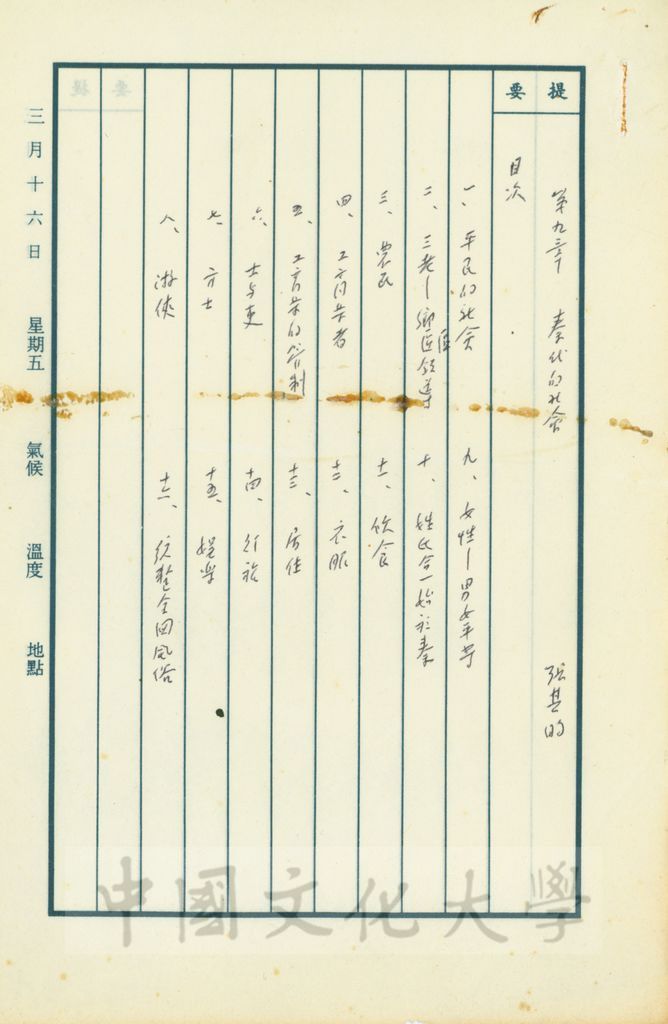 提要
第九章 秦代的社會 張其昀
目次
一、平民的社會
二、三老—鄉區領導
三、農民
四、工商業者
五、工商業的管制
六、士與吏
七、方士
八、游俠
九、女性—男女平等
十、姓氏合一始於秦
十一、飲食
十二、衣服
十三、居住
十四、行旅
十五、娛樂
十六、統整全國風俗
三月十六日 星期五 氣候 溫度 地點
中國文化大學